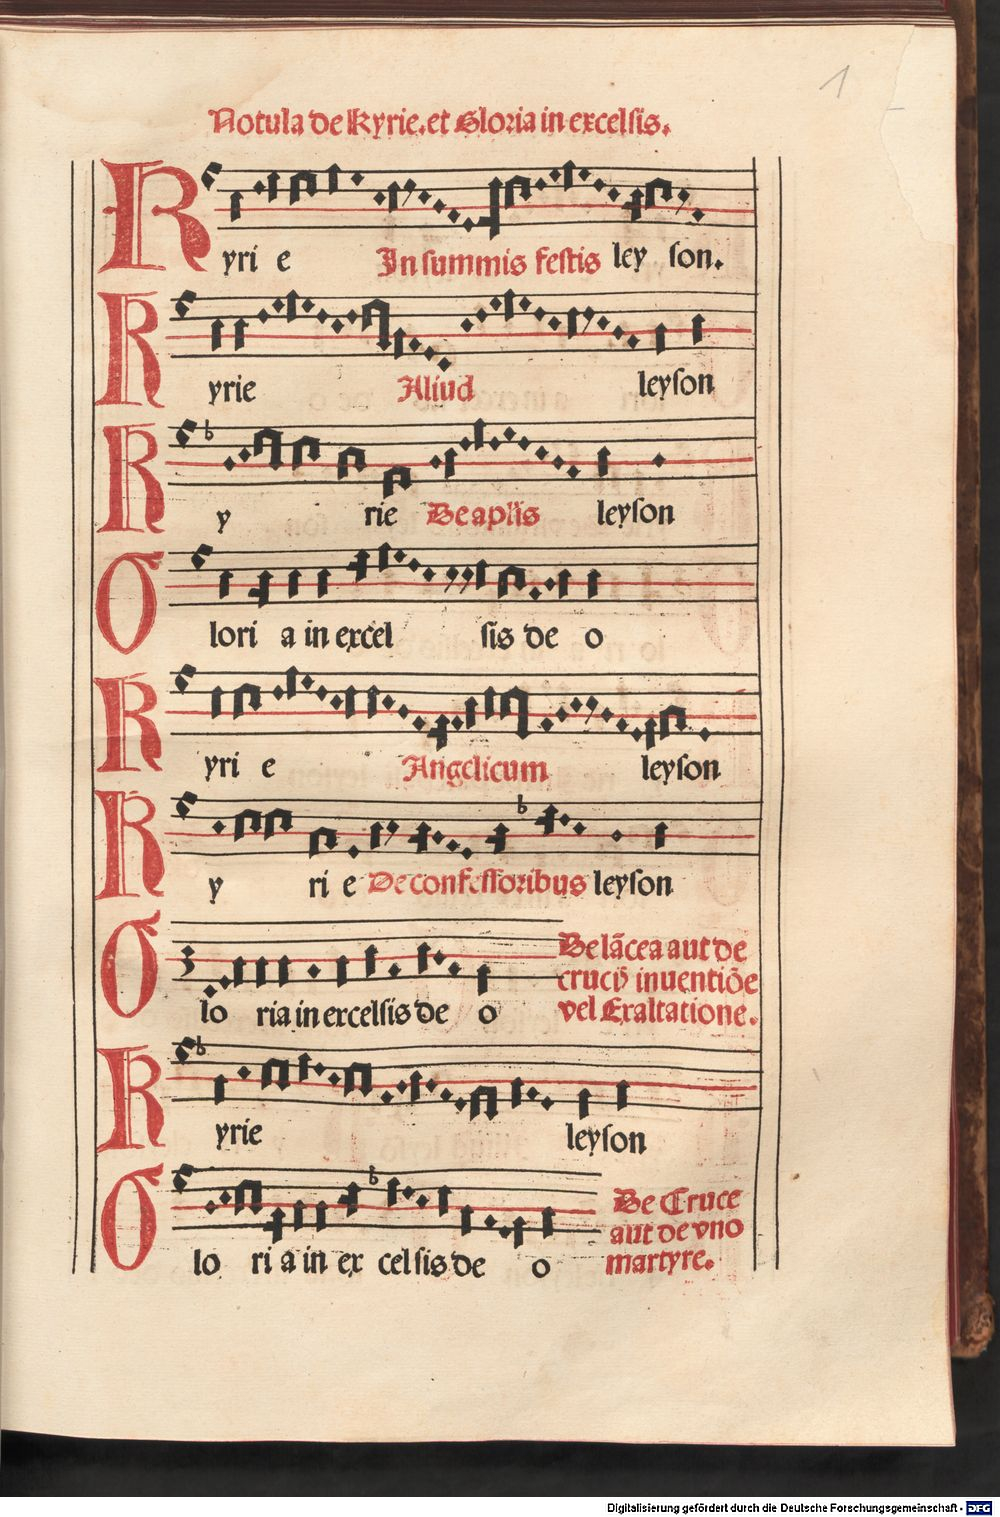 1
Notula de Kyrie. et Gloria in excelsis.
Kyri e In summis festis ley son.
Kyrie Aliud leyson
K y rie De aplis leyson
Glori a in excel sis de o
Kyri e Angelicum leyson
K y ri e De confessoribus leyson
Glo ria in excelsis de o
De lācea aut de
crucꝭ inuentiōe
vel Exaltatione.
Kyrie leyson
Glo ri a in ex celsis de o
De Cruce
aut de vno
martyre.
Digitalisierung gefördert durch die Deutsche Forschungsgemeinschaft - DFG